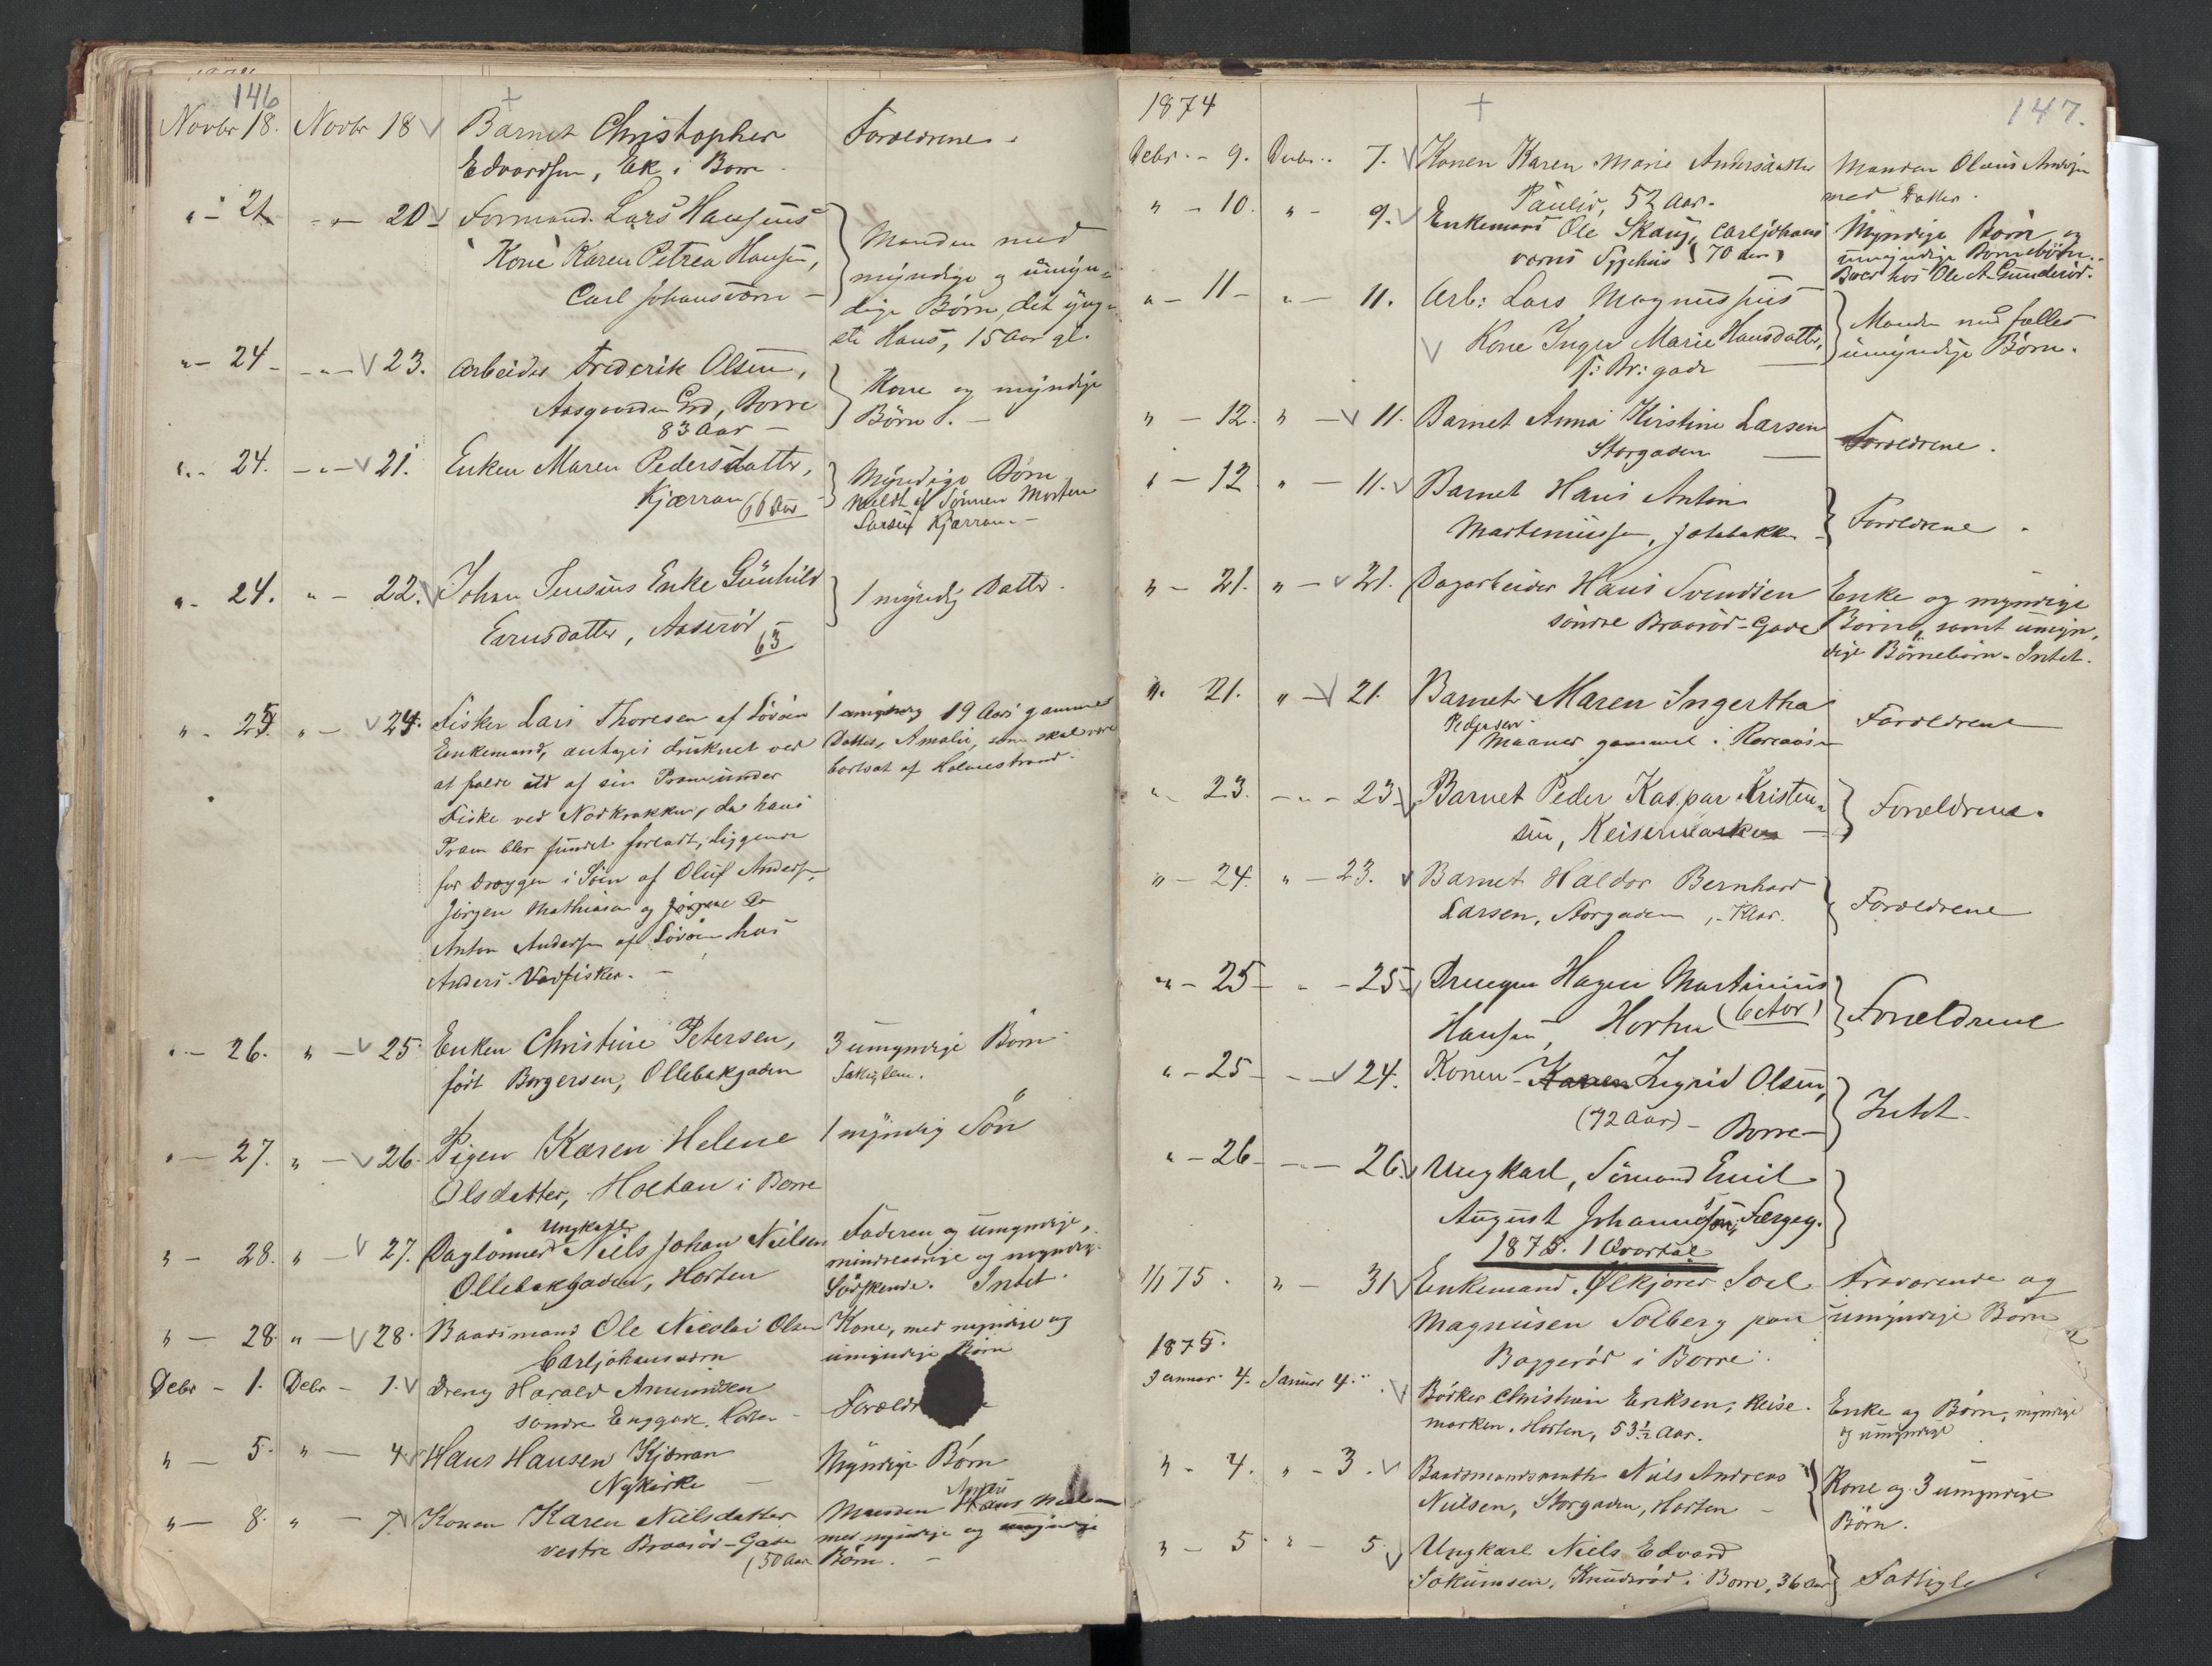 146
Novbr 18. Novbr 18 Barnet Christopher Forældrene.
Edvardsen, Ek i Borre.
" - 21 " - 20 Formand Lars Hansens Manden med
Kone Karen Petrea Hansen, myndige og umyn-
Carl Johansværn - dige Børn, det yng-
ste Hans, 15 Aar gl.
" - 24 - " - 23. Arbeider Frederik Olsen, Kone og myndige
Aasgaarden Borre Børn. -
83 Aar -
" - 24. - " - 21. Enken Maren Pedersdatter, Myndige Børn
Kjærran 66 Aar meldt af Sønnen Morten
Larsen Kjærran -
" - 24. " - 22. Johan Jensens Enke Gunhild 1 myndig Datter.
Evensdatter, Aaserød
63
" - 25. " - 24. Fisker Lars Thoresen af Løvøen 1 19 Aars gammel
Enkemand, antages druknet ved Datter, Amalie, som skal være
at falde ud af sin Pram under bortsat af Holmestrand.
Fiske ved , da hans
Pram blev fundet forladt, liggende
for Dræggen i Søen af Oluf Andersen,
Jørgen Mathiasen og
Anton Andersen af Løvøen hos
Anders Vadfisker. -
" - 26. " - 25. Enken Christine Petersen, 3 umyndige Børn
født Borgersen, Ollebakgaden
" - 27. " - 26. Pigen Karen Helene 1 myndig Søn
Olsdatter, Holtan i Borre
Ungkarl
" - 28. " - 27. Daglønner Niels Johan Nielsen Faderen og umyndige,
Ollebakgaden, Horten mindreaarige og myndige
Sødskende. Intet.
" - 28. " - 28. Baadsmand Ole Nicolai Olsen Kone, med myndige og
Carljohansværn umyndige Børn
Debr - 1. Debr - 1. Dreng Harald Amundsen Foræld
søndre Enggade. Horten -
" - 5. " - 4. Hans Hansen Kjærran Myndige Børn
Nykirke -
Anders
" - 8. " - 7. Konen Karen Nielsdatter Manden Hans Nielsen
vestre Braarød-Gade med myndige og umyndige
(50 Aar Børn. -
1874 147.
Debr. - 9. Debr. 7. Konen Karen Marie Andersdatter Manden Olaus Andersen
Pauliv, 52 Aar. med Datter.
" - 10. " - 9. Enkemand Ole Skaug, Carljohans Myndige Børn og
værns Sygehus (70 Aar) umyndige Børnebørn.
Boer hos Ole A. Gunderød.
" - 11 - " - 11. Arb: Lars Magnussens Manden med fælles
Kone Inger Marie Hansdatter, umyndige Børn.
gade
" - 12. " - 11. Barnet Anna Kirstine Larsen Forældrene.
Storgaden
" - 12 " - 11. Barnet Hans Anton Forældrene.
Martiniussen,
" - 21. " - 21. Dagarbeider Hans Svendsen Enke og myndige
søndre Braarød-Gade Børn, samt umyn-
dige Børnebørn - Intet.
" 21. " - 21. Barnet Maren Ingertha Forældrene
Pedersen
Maaned gammel i
" - 23. - " - 23. Barnet Peder Kaspar Kristen- Forældrene.
sen, Keisemarken -
" - 24. " - 23. Barnet Haldor Bernhard Forældrene
Larsen, Storgaden, - Aar.
" - 25 - " - 25 - Drengen Hagen Martinius Forældrene
Hansen, Horten (6 Aar)
" - 25 - " - 24. Konen Karen Ingrid Olsen, Intet.
(72 Aar) - Borre -
" - 26 - " - 26. Ungkarl, Sømand Emil
August Johannesen, Færgeg.
1875. 1 Qvartal
1/1 75. " - 31 Enkemand. Ølkjører Joel Fraværende og
Magnusen Solberg paa umyndige Børn
1875.
Baggerød i Borre.
Januar. 4. Januar 4. Bødker Christian Eriksen, Keise- Enke og Børn, myndige
marken. Horten, 53½ Aar. og umyndige
" - 4. " - 3. Baadsmandsmath Niels Andreas Kone og 3 umyndige
Nielsen, Storgaden, Horten - Børn.
" - 5. " - 5. Ungkarl Niels Edvard
Jokumsen, Knudsrød i Borre, 36 Aar Fattigl